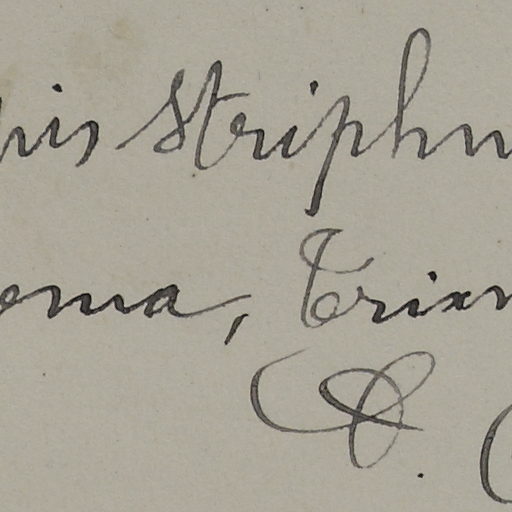 ris Striphn
ema, Trixn